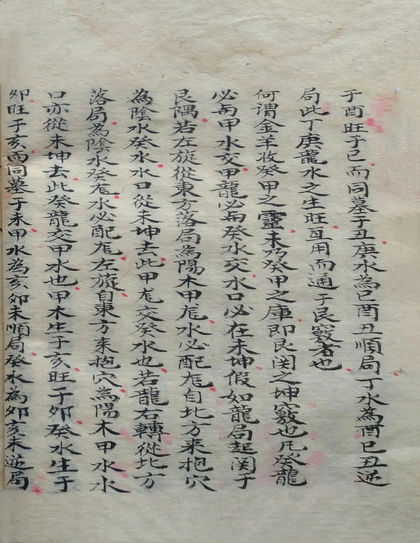 于酉旺于巳而同墓于丑庚水為巳酉丑順局丁水為酉巳丑逆
局此丁庚龍水之生旺互用而通于艮竅者也
何謂金羊收癸甲之靈未乃癸甲之庫即艮関之坤竅也凡癸龍
必甲水交甲龍必癸水交水口必在未坤假如龍局起関于
艮隅若左旋從東方落局為陽木甲尨水必配尨自北方来抱穴
為陰水癸水水口從未坤去此甲尨交癸水也若龍右轉從北方
落局為陰水癸尨水必配尨左旋自東方来抱穴為陽木甲水水
口亦從未坤去此癸龍交甲水也甲木生于亥旺于卯癸水生于
卯旺于亥而同墓于未甲水為亥卯未順局癸水為卯亥未逆局